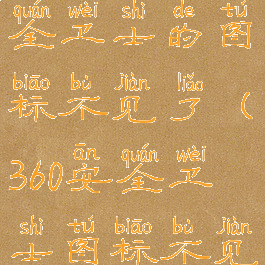 quán wèi shì de tú
全卫士的图
biāo bù jiàn liǎo
标不见了（
ān quán wèi
360安全卫
shì tú biāo bù jiàn
士图标不见